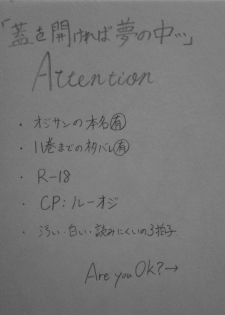 「蓋を開ければ夢の中…」
Attention
・オジサンの本名有
・11巻までのネタバレ有
・R-18
・CP:ルーオジ
・汚い・白い・読みにくいの3拍子
Are you OK?→